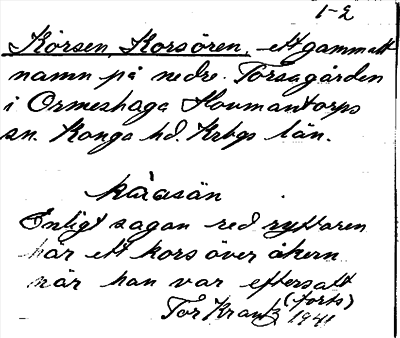 1-2
Korsen, Korsören, ett gammalt
namn på nedre. Torsagården
i Ormeshaga Hovmantorps
sn. Konga hd. Krbgs län.
Enligt sagan red ryttaren
här ett kors över åkern
när han var eftersatt
(forts)
Tor Krantz 1941